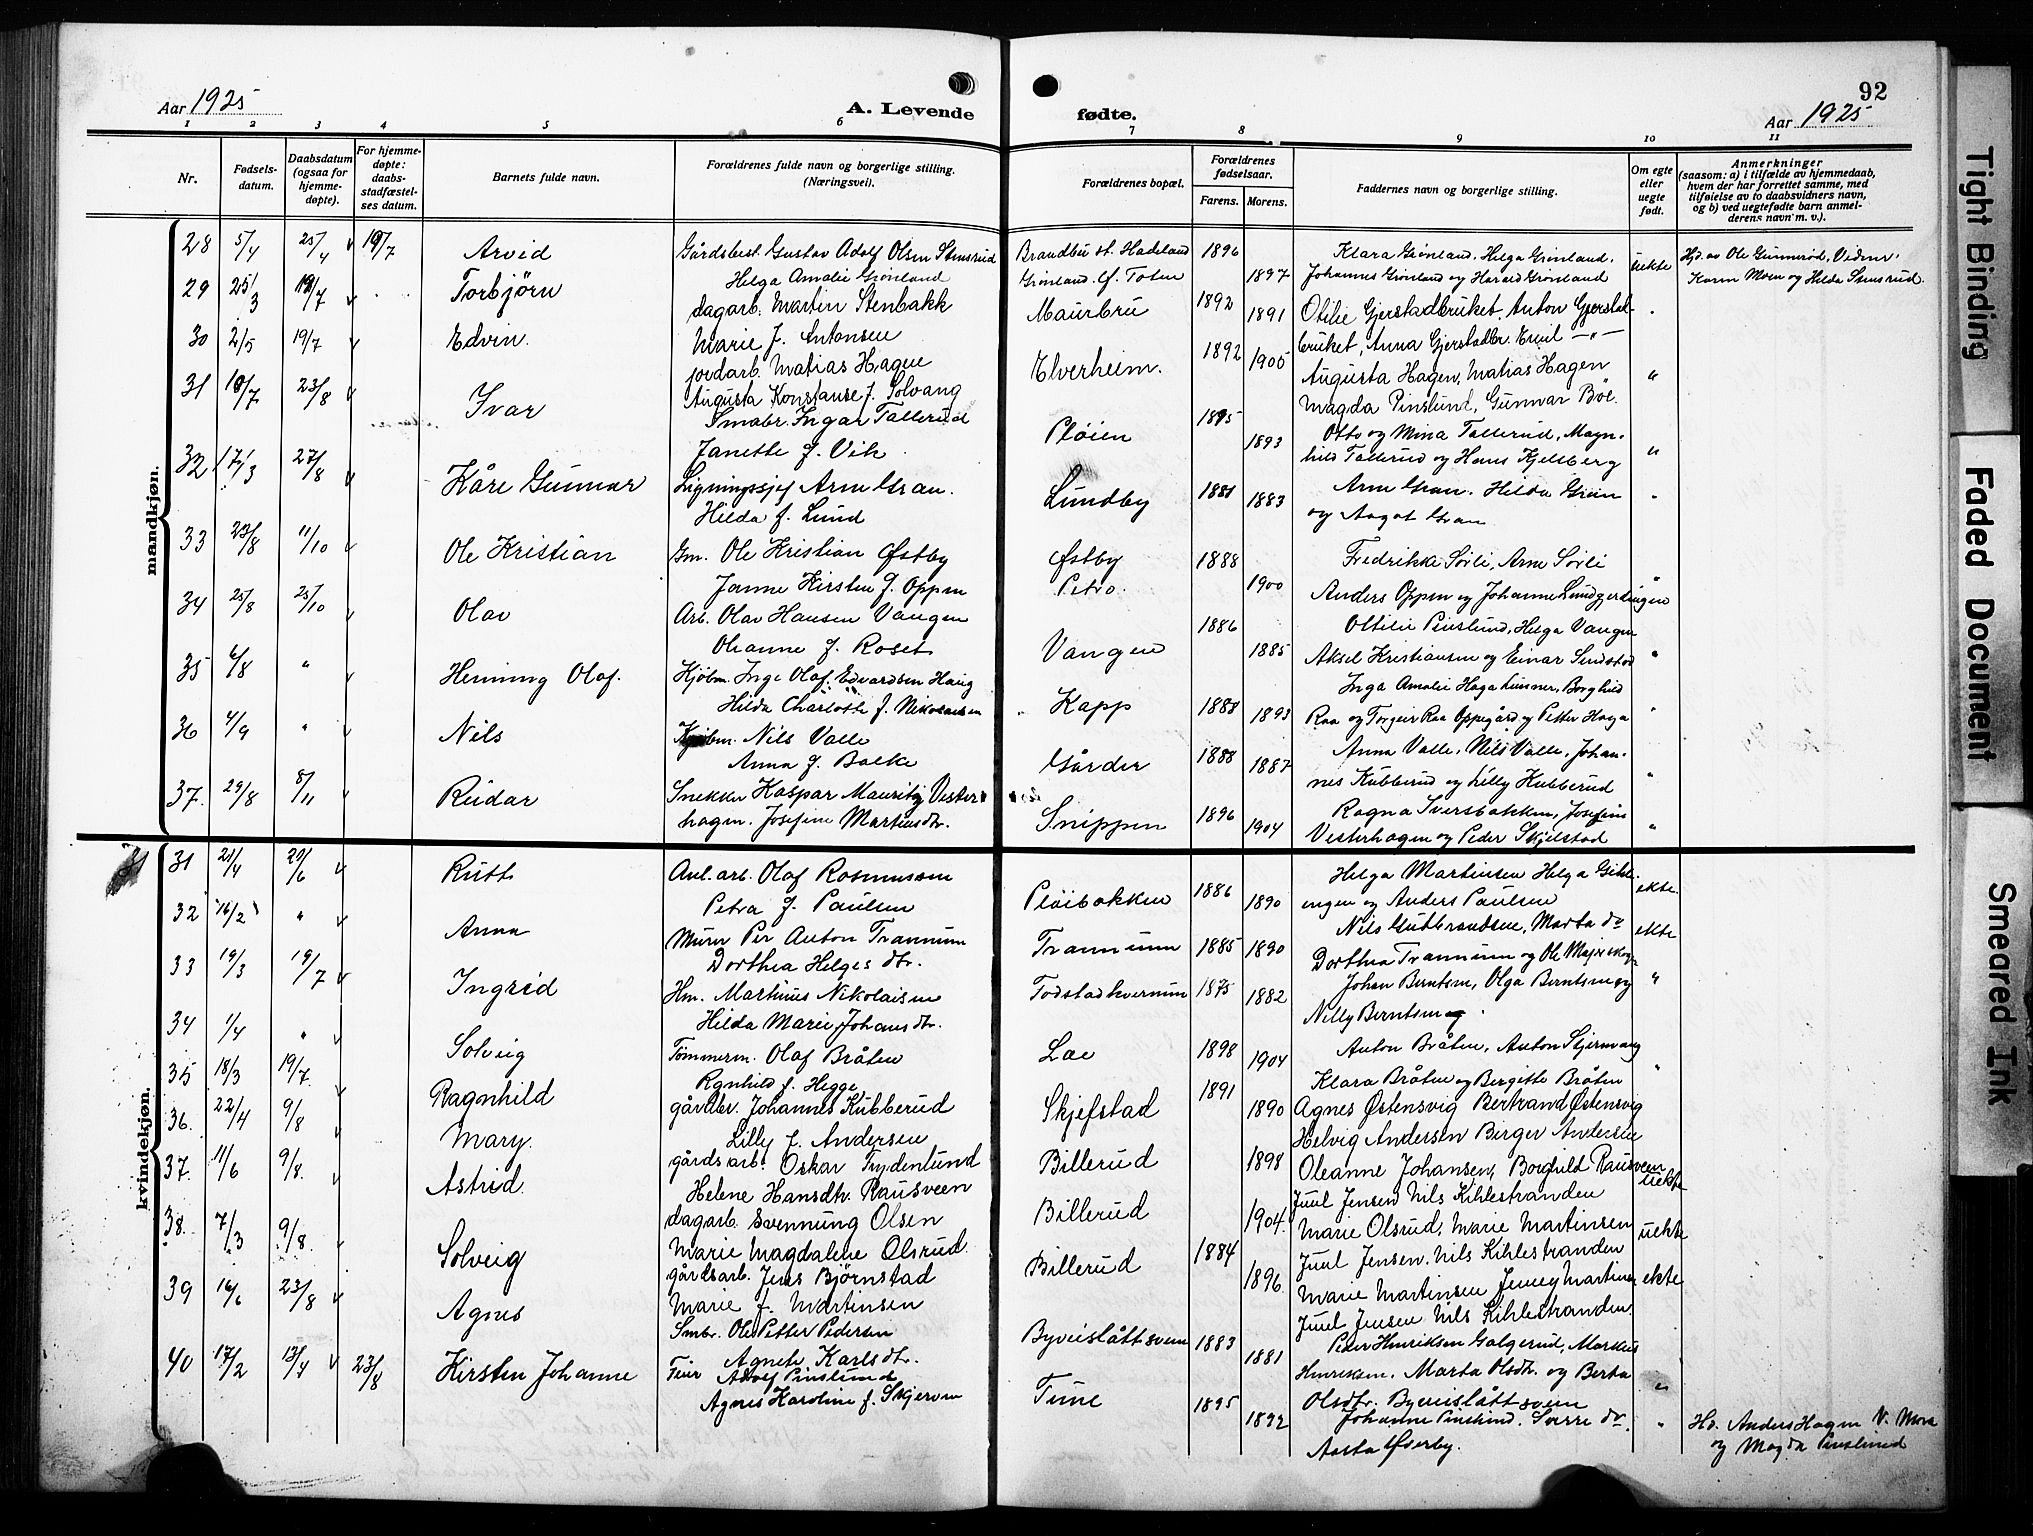 92
Aar 1925
A. Levende fødte.
Aar 1925
1 2 3 4 5 6 7 8 9 10 11
Nr.
Fødsels-
datum.
Daabsdatum
(ogsaa for
hjemme-
døpte).
For hjemme-
døpte:
daabs-
stadfæstel-
ses datum.
Barnets fulde navn.
Forældrenes fulde navn og borgerlige stilling.
(Næringsvei).
Forældrenes bopæl.
Forældrenes
fødselsaar.
Farens. Morens.
Faddernes navn og borgerlige stilling.
Om egte
eller
uegte
født.
Anmerkninger
(saasom: a) i tilfælde av hjemmedaab,
hvem der har forrettet samme, med
tilføielse av to daabsvidners navn,
og b) ved uegtefødte barn anmel-
derens navn m. v.).
mandkjøn.
28 5/4 25/4 19/7 Arvid Gårdsbest. Gustav Adolf Olsen Stensrud Brandbu st. Hadeland 1896 Klara Grønland, Helga Grønland, uekte Hjd. av Ole Gunnerød, Vidner:
Helga Amalie Grønland Grønland. Ø. Toten 1897 Johannes Grønland og Harald Grønland Karen Moen og Hilda Stensrud.
29 25/3 19/7 Torbjørn dagarb. Martin Stenbakk Maurbru 1892 1891 Otilie Gjerstadbruket, Anton Gjerstad-
Marie f. Antonsen bruket, Anna Gjerstadbr. Emil —"—
30 2/5 19/7 Edvin. jordarb. Matias Hagen Elverheim. 1892 1905 Augusta Hagen, Matias Hagen "
Augusta Konstanse f. Solvang Magda Pinslund, Gunnar Bøe.
31 10/7 23/8 Ivar Småbr. Ingar Tallerud Pløien 1895 1893 Otto og Mina Tollerud, Magn- "
Janette f. Vik hild Tallerud og Hans Kjelsberg
32 17/3 27/8 Kåre Gunnar Ligningssjef Arne Gran. Lundby 1881 1883 Arne Gran. Hilda Gran "
Hilda f. Lund og Aagot Gran
33 23/8 11/10 Ole Kristian Gm. Ole Kristian Østby Østby 1888 Fredrikke Sørli, Arne Sørli "
Janne Kirsten f. Oppen Petro. 1900 Anders Oppen og Johanne Lundgjerdingen
34 25/8 25/10 Olav Arb. Olav Hansen Vangen Vangen 1886 1885 Ottilie Pinslund, Helga Vangen "
Oleanne f. Roset Aksel Kristiansen og Einar Sundstad
35 6/8 " Henning Olaf. Kjøbm. Inge Olaf Edvardsen Haug Kapp 1888 1893 Inga Amalie Haga Lunner, Borghild "
Hilda Charlotte f. Nikolaisen Raa og Torgeir Raa Oppegård og Petter Haga
36 4/9 " Nils Kjøbm. Nils Valle Gårder 1888 1887 Anna Valle, Nils Valle, Johan- "
Anna f. Balke nes Kubberud og Lilly Kubberud
37. 29/8 8/11 Reidar Snekker Kaspar Mauritz Vester- Snippen 1896 1904 Ragna Iversbakken, Josefine "
hagen. Josefine Martinsdtr. Vesterhagen og Peder Skjelstad
kvindekjøn.
31 21/4 20/6 Ruth Anl. arb. Olaf Rasmussen Pløibakken 1886 1890 Helga Martinsen Helga ekte.
Petra f. Paulsen engen og Anders Paulsen
32 16/2 " Anna Murer Per Anton Trannum Trannum 1885 1890 Nils Gubbrandsen, Marta do ekte
Dorthea Helges dtr. Dorthea Trannum og Ole
33 19/3 19/7 Ingrid Hm. Martinus Nikolaisen Todstadkvernum 1875 1882 Johan Berntsen, Olga Berntsen og "
Hilda Marie Johans dtr. Nelly Berntsen
34 1/4 " Solveig Tømmerm. Olaf Bråten Lae 1898 1904 Anton Bråten, Anton Skjerwang "
Ragnhild f. Hegge Klara Bråten og Bergitte Bråten
35 18/3 19/7. Ragnhild gårdbr. Johannes Kubberud Skjefstad 1891 1890 Agnes Østensvig Bertrand Østensvig
Lilly f. Andersen Helvig Andersen Birger Andersen
36. 22/4 9/8 Mary. gårdsarb. Oskar Frydenlund Billerud 1898 Oleanne Johansen, Borghild Rausveen uekte
Helene Hansdtr. Rausveen Juul Jensen Nils Kihlestranden
37. 11/6 9/8. Astrid dagarb. Svennung Olsen Billerud 1904. Marie Olsrud, Marie Martinsen uekte
Marie Magdalene Olsrud. Juul Jensen. Nils Kihlestranden
38. 7/3 9/8. Solveig gårdsarb. Jens Bjørnstad Billerud 1884 1896 Marie Martinsen Jenney Martinsen ekte
Marie f. Martinsen Juul Jensen Nils Kihlestranden.
39 16/6 23/8 Agnes Smbr. Ole Petter Pedersen Byveislåttsveen 1883 1881 Peder Henriksen Galgerud, Markus
Agnete Karlsdtr. Henriksen. Marta Olsdtr. og Berta "
Olsdtr. Byveislåttsveen
40 17/2 13/4 23/8 Kirsten Johanne Feier Adolf Pinslund Tune 1895 1892 Johanne Pinslund. Sverre do. " Hd. Anders Hagen V. Mora
Agnes Karoline f. Skjerven Aasta Øverby. og Magda Pinslund
Tight Binding
Faded Document
Smeared Ink